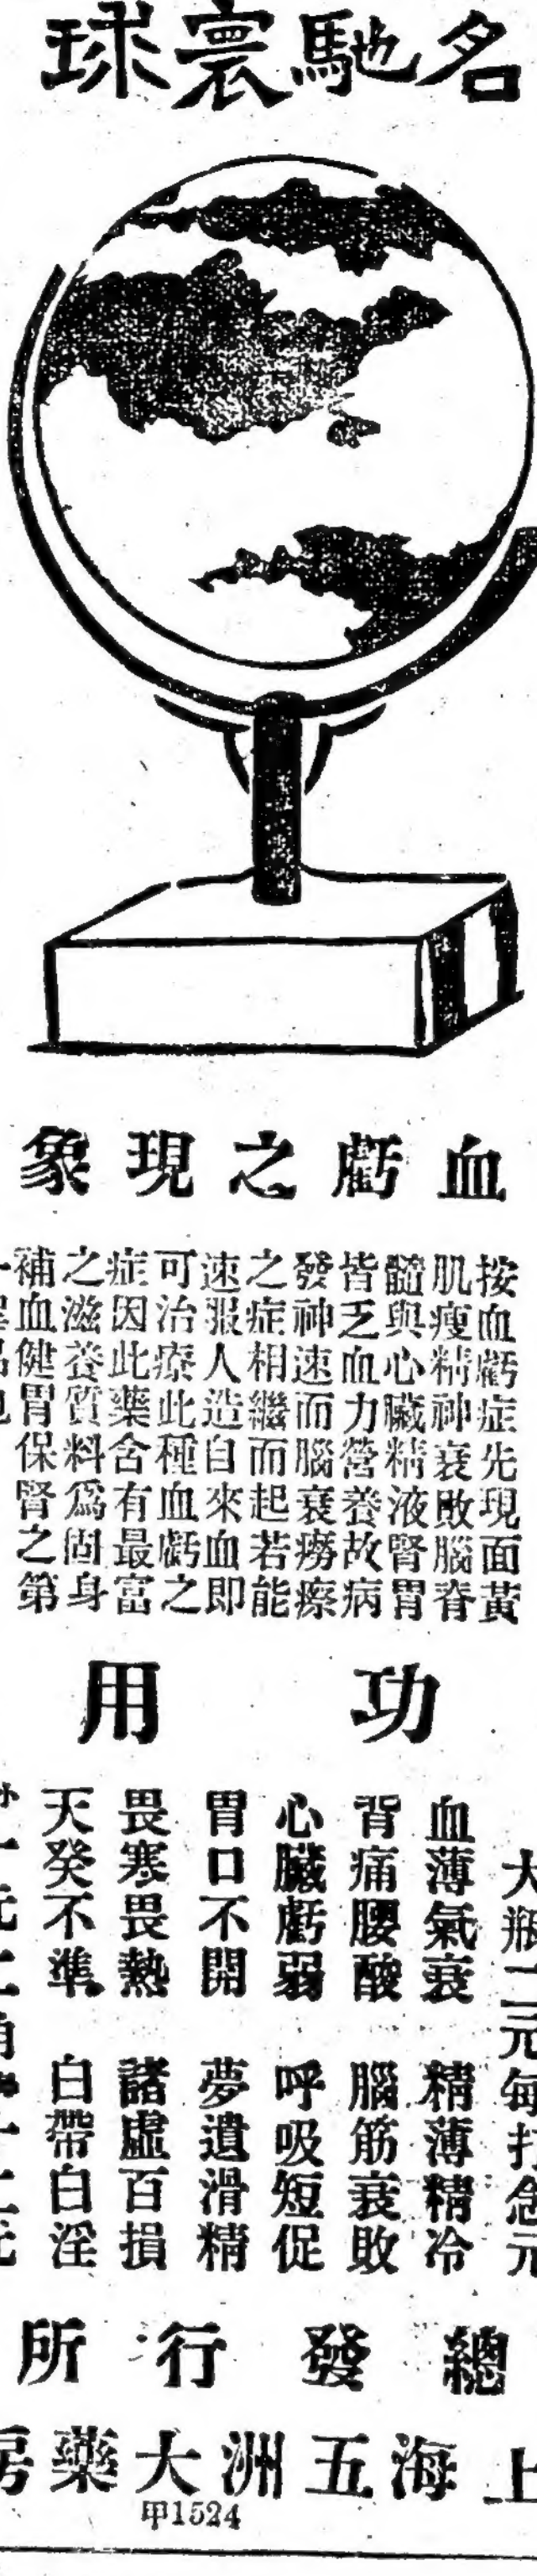 名馳寰球
血虧之現象
按血虧症先現面黃
肌瘦精神衰敗腦脊
髓與心臟精液腎胃
皆乏血力營養故病
發神速而腦衰癆瘵
之症相繼而起若能
速服人造自來血即
可治療此種血虧之
症因此藥含有最富
之滋養質料爲固身
補血健胃保腎之第
功用
大瓶二元每打念元
血薄氣衰 精薄精冷
背痛腰酸 腦筋衰敗
心臟虧弱 呼吸短促
胃口不開 夢遺滑精
畏寒畏熱 諸虛百損
天癸不準 白帶白淫
總發行所
上海五洲大藥房
甲1524